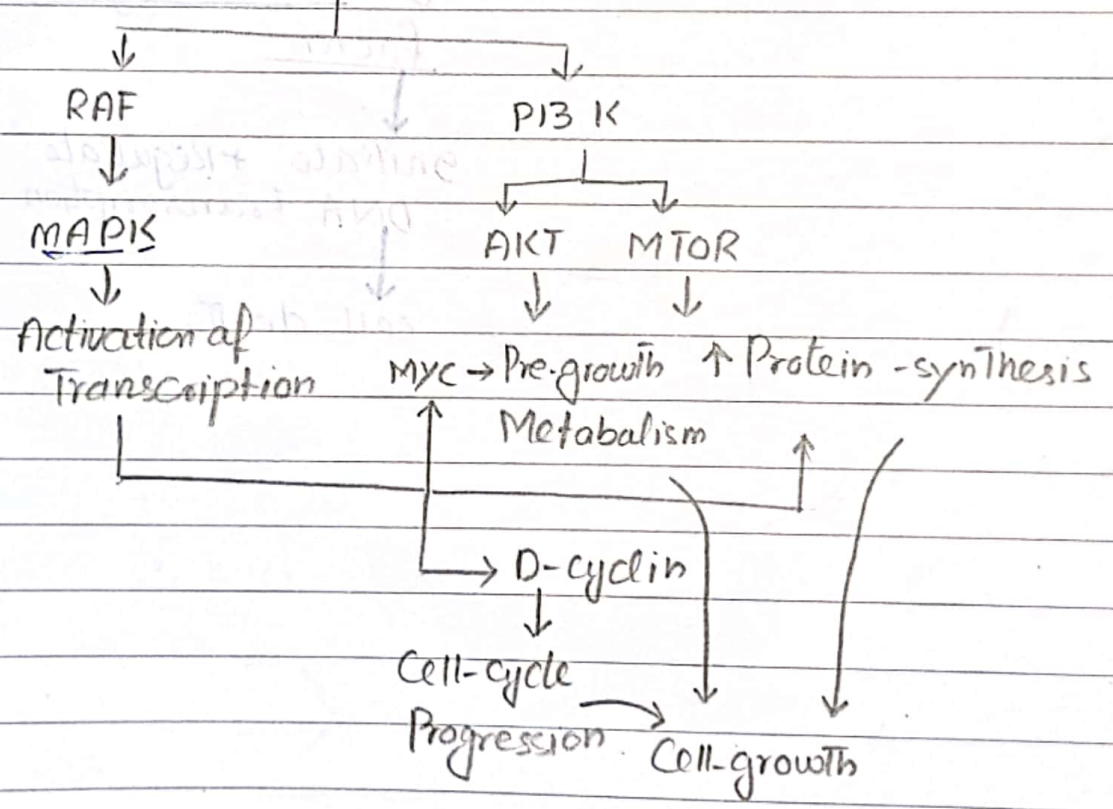 RAF PI3 K
MAPK AKT MTOR
Activation of
Transcription MYC → Pre-growth ↑ Protein-synthesis
Metabalism
D-cyclin
Cell-cycle
Progression Cell-growth